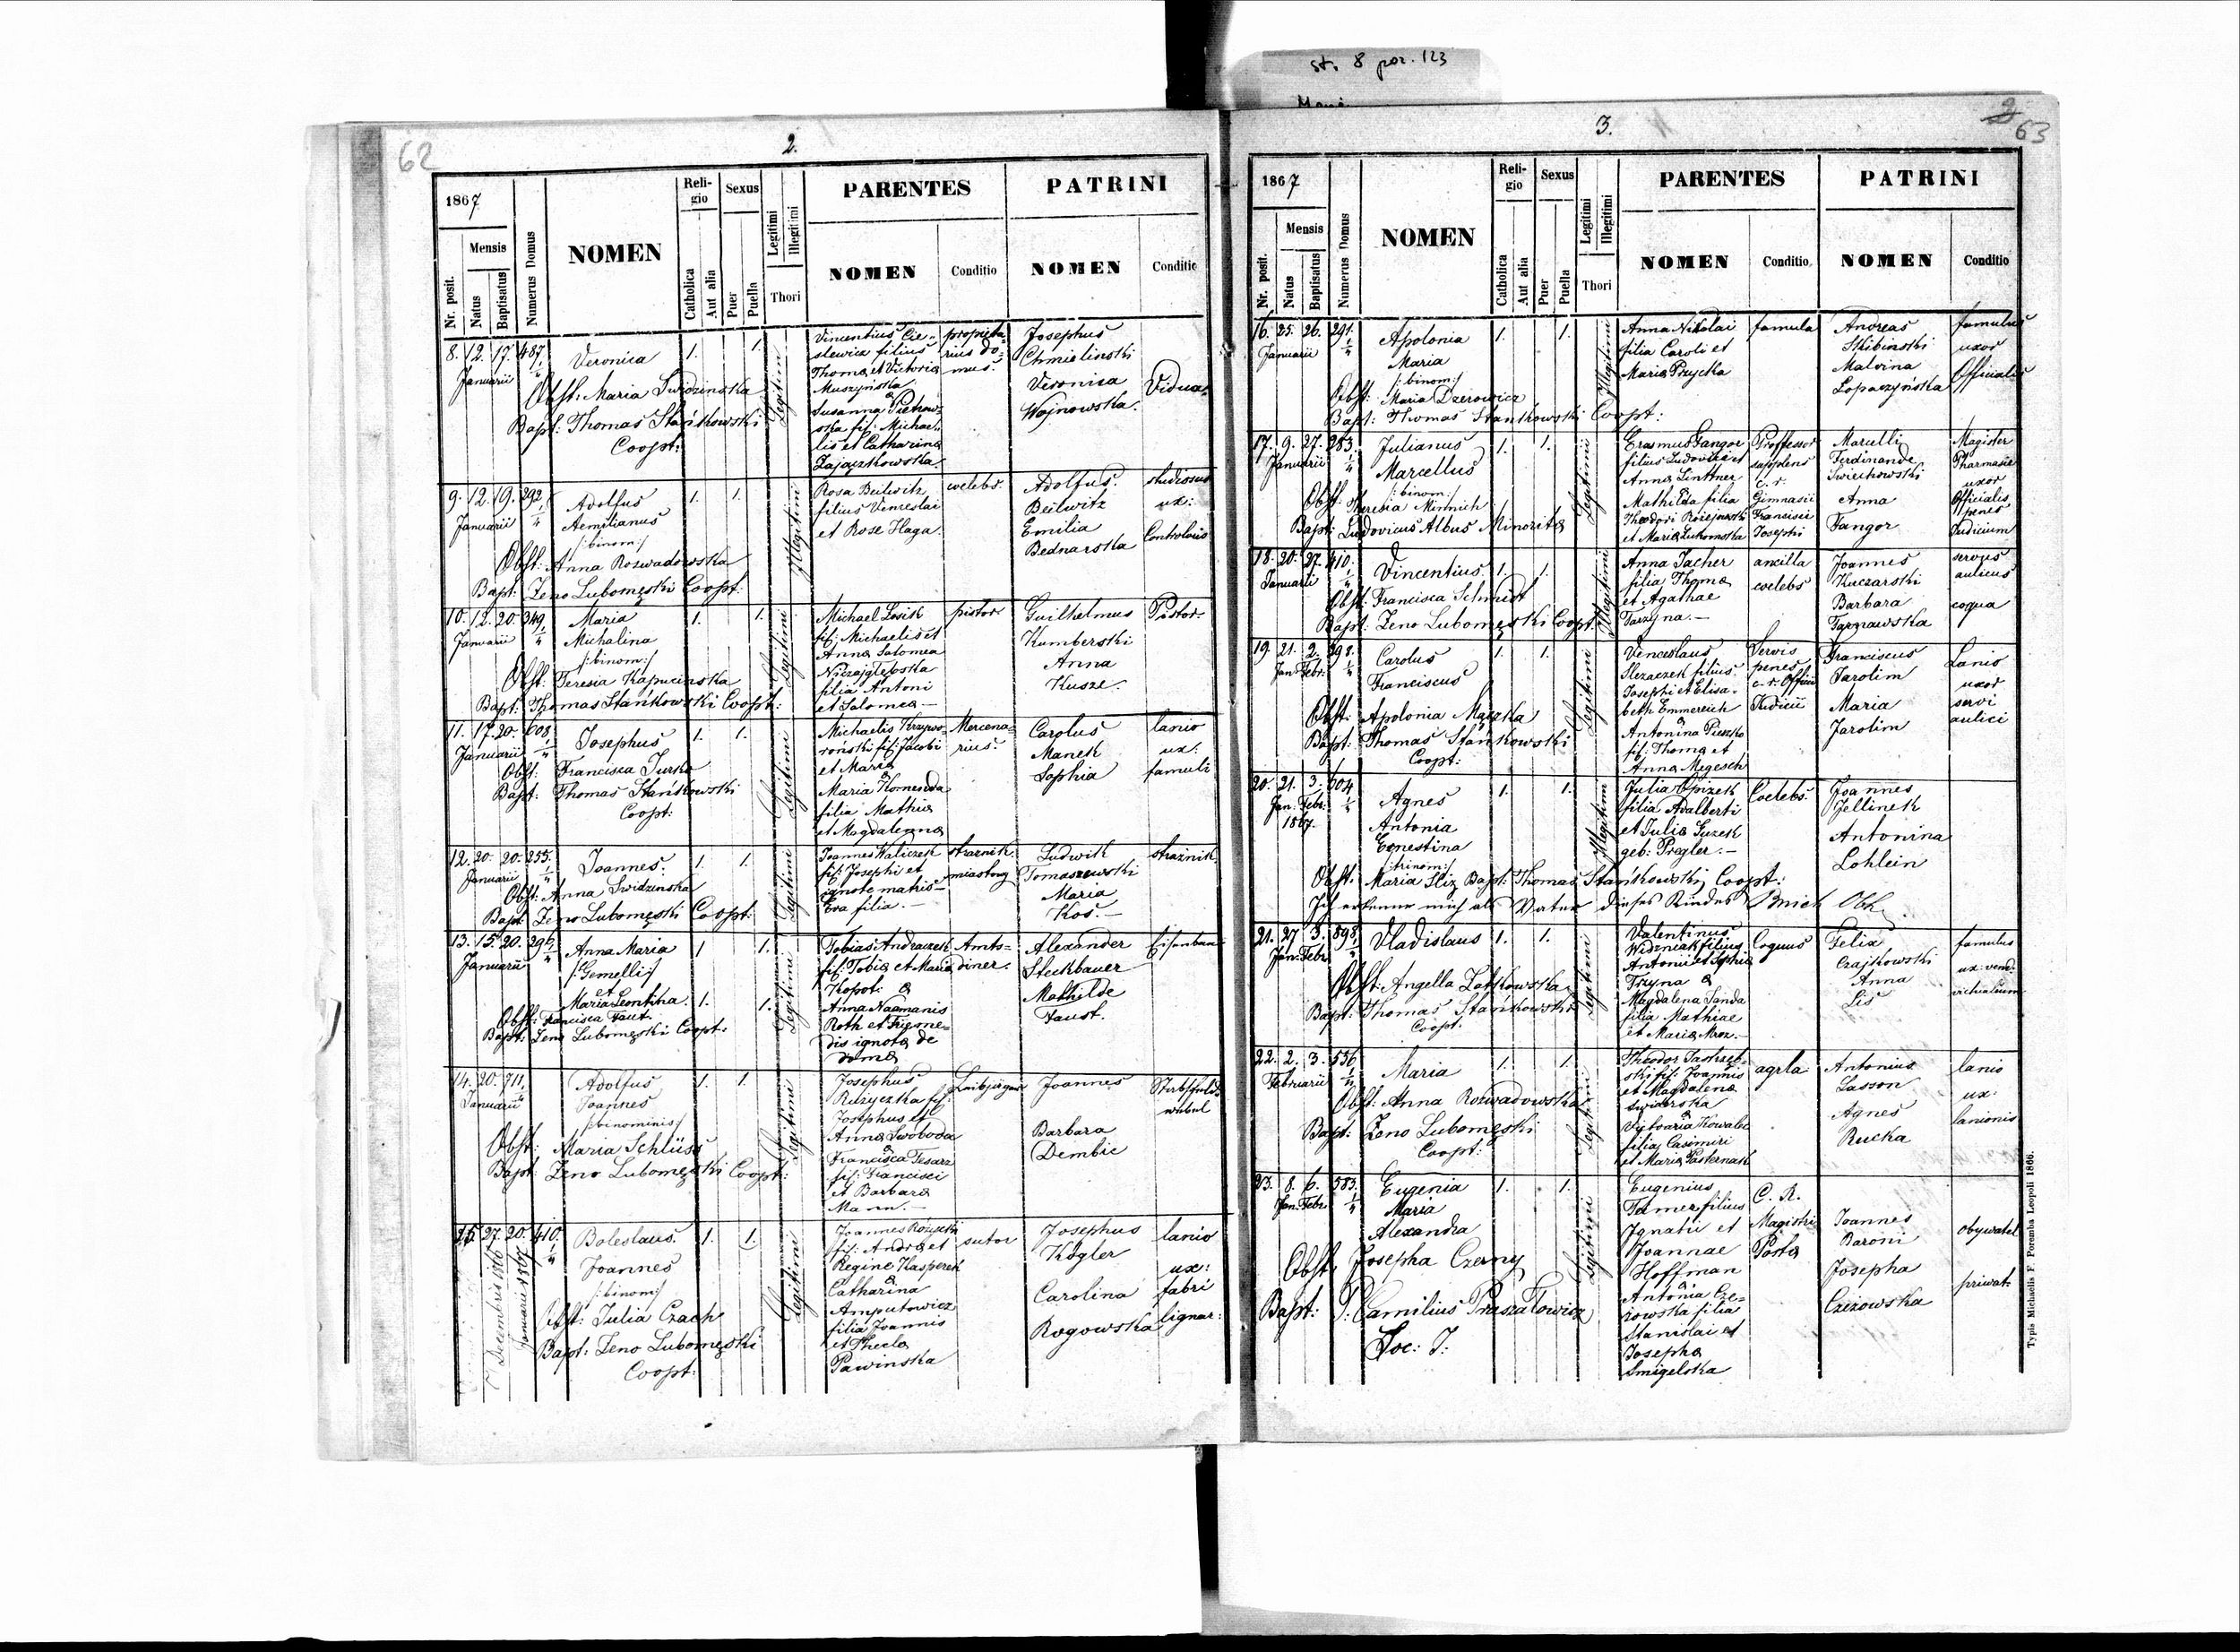 st. 8 poz. 123
62
2.
1867
Nr. posit.
Mensis
Natus
Baptisatus
Numerus Domus
NOMEN
Reli-
gio
Catholica
Aut alia
Sexus
Puer
Puella
Legitimi
Illegitimi
Thori
PARENTES
NOMEN
Conditio
PATRINI
NOMEN
Conditio
8. 12. 17. 487 1/4
Januarii
Veronica
1. 1.
Obst: Maria Swidzinska
Bapt: Thomas Stańkowski
Coopt:
Legitimi
Vincentius Cie-
slewicz filius
Thoma et Victoria
Muszyńska
&
Susanna Pietrow-
ska fil: Michae-
lis et Catharina
Zajączkowska.
proprieta-
rius do-
mus.
Josephus
Chmielinski
Veronica
Wojnowska.
Vidua
9. 12. 19. 292 1/4
Januarii
Adolfus
Aemilianus
/:binom:/
1. 1.
Obst: Anna Rozwadowska
Bapt: Zeno Lubomęski Coopt:
Illegitimi
Rosa Beilwitz
filius Vinceslai
et Rose Haga.
coelebs.
Adolfus
Beilwitz
Emilia
Bednarska
studiosus
ux:
Controloris
10. 12. 20. 349 1/4
Januarii
Maria
Michalina
/:binom:/
1. 1.
Obst: Teresia Kapucinska
Bapt: Thomas Stańkowski Coopt:
Legitimi
Michael Losik
fil: Michaelis et
Anna Salomea
filia Antoni
et Salomea —
pistor
Guilhelmus
Kumberski
Anna
Kusze.
Pistor.
11. 17. 20. 608 1/4
Januarii
Josephus
1. 1.
Obst: Francisca Turska
Bapt: Thomas Stańkowski
Coopt:
Legitimi
Michaelis Krzywo-
roński fil: Jacobi
et Maria
&
Maria Kornenda
filia Mathia
et Magdalenna
Mercena-
rius.
Carolus
Manek
Sophia
lanio
ux:
famuli
12. 20. 20. 255. 1/4
Januarii
Joannes.
1. 1.
Obst: Anna Swidzinska
Bapt: Zeno Lubomęski Coopt:
Legitimi
Joannes Waliczek
fil: Josephi et
ignote matris —
Eva filia. —
strażnik
miastowy
Ludwik
Tomaszewski
Maria
Koś. —
strażnik
13. 15. 20. 296 1/4
Januarii
Anna Maria
/:Gemelli:/
et
Maria Leontina.
1. 1.
1. 1.
Obst: Francisca Faut.
Bapt: Zeno Lubomęski Coopt:
Legitimi
Tobias Andraczek
fil: Tobia et Maria
Kopot: &
Anna Naamanis
Roth et
dis ignota de
doma
Amts-
diner.
Alexander
Steckbauer
Mathilde
Faust.
14. 20. 711. 1/4
Januarii
Adolfus
Joannes
/:binominis/
1. 1.
Obst: Maria Schlüss
Bapt: Zeno Lubomęski Coopt:
Legitimi
Josephus
Ruzyczka fil:
Josephus et
Anna Swoboda
&
Francisca Tesarz
fil: Francisci
et Barbara
Mann. —
Joannes
Barbara
Dembic
15. 27. 20. 410. 1/4
Decembris 1866
Januarii 1867
Boleslaus.
Joannes
/:binom:/
1. 1.
Obst: Julia Czach
Bapt: Zeno Lubomęski
Coopt:
Legitimi
Joannes Rózycki
fil: Andra et
Regine Kasperek
&
Catharina
Amputowicz
filia Joannis
et Thecla
Pawinska
sutor
Josephus
Kögler
Carolina
Rogowska
lanio
ux:
fabri
lignar:
63
3.
1867
Nr. posit.
Mensis
Natus
Baptisatus
Numerus Domus
NOMEN
Reli-
gio
Catholica
Aut alia
Sexus
Puer
Puella
Legitimi
Illegitimi
Thori
PARENTES
NOMEN
Conditio
PATRINI
NOMEN
Conditio
16. 25. 26. 291. 1/4
Januarii
Apolonia
Maria
/:binom:/
1. 1.
Obst: Maria Dzerowicz
Bapt: Thomas Stańkowski Coopt:
Illegitimi
Anna Nikolai
filia Caroli et
Maria Przycka
famula
Andreas
Skibinski
Malvina
Lopaczyńska
famulus
uxor
Officialis
17. 9. 27. 283. 1/4
Januarii
Julianus
Marcellus
/:binom:/
1. 1.
Obst: Theresia Minnich
Bapt: Ludovicus Albus Minorita
Legitimi
Erasmus Fangor
filius Ludovici et
Anna Linttner
Mathilda filia
Theodori Rożejowski
et Maria Lukomska
Proffessor
supplens
c. r.
Gimnasii
Francisci
Josephi
Marcelli
Ferdinande
Swiechowski
Anna
Fangor
Magister
Pharmasie
uxor
Officialis
penes
Judicium
18. 20. 27. 410. 1/4
Januarii
Vincentius
1. 1.
Obst: Francisca Schmidt
Bapt: Zeno Lubomęski Coopt:
Illegitimi
Anna Sacher
filia Thoma
et Agathae
Tarzyna. —
ancilla
coelebs
Joannes
Kuczarski
Barbara
Tarnawska
servus
aulicus
coqua
19. 21. 2. 298. 1/4
Jan. Febr.
Carolus
Franciscus
1. 1.
Obst: Apolonia Mączka
Bapt: Thomas Stańkowski
Coopt:
Legitimi
Venceslaus
Slezaczek filius
Josephi et Elisa-
beth Emmereich
&
Antonina Pieszko
fil: Thoma et
Anna Megesch
Servis
penes
c. r. Offici
Judicii
Franciscus
Jarolim
Maria
Jarolim
Lanio
uxor
servi
aulici
20. 21. 3. 604 1/4
Jan. Febr.
1867.
Agnes
Antonia
Ernestina
/:trinom:/
1. 1.
Obst: Maria Sliz Bapt: Thomas Stańkowski, Coopt:
Ich erkenne mich als Vater dieses Kindes
Illegitimi
Julia Opizek
filia Adalberti
et Julia Suzek
geb: Pregler. —
Coelebs.
Joannes
Jellinek
Antonina
Lohlein
21. 27. 3. 898. 1/4
Jan. Febr.
Vladislaus
1. 1.
Obst: Angella Zatkowska
Bapt: Thomas Stańkowski
Coopt:
Legitimi
Valentinus
Widzniak filius
Antonii et Sophia
Trzyna &
Magdalena Janda
filia Mathiae
et Maria Mroz. —
Coquus
Felix
Czajkowski
Anna
Lis
famulus
ux: vend.
victualium
22. 2. 3. 536 1/4
Februarii
Maria
1. 1.
Obst: Anna Rozwadowska
Bapt: Zeno Lubomęski
Coopt:
Legitimi
Theodor Jastrzęb-
ski fil: Joannis
et Magdalena
Swiderska
&
Victoria Kowalec
filia Casimiri
et Maria Pasternak
agrla
Antonius
Sasson
Agnes
Rucka
lanio
ux:
lanionis
23. 8. 6. 583. 1/4
Jan. Febr.
Eugenia
Maria
Alexandra
1. 1.
Obst: Josepha Czerny
Bapt: P: Camilius Praszałowicz
Soc: J:
Legitimi
Eugenius
Tamer filius
Ignatii et
Joannae
Hoffman
&
Antonia Cze-
zowska filia
Stanislai et
Josepha
Smigelska
C. R.
Magistri
Posta
Joannes
Baroni
Josepha
Czezowska
obywatel
priwat.
Typis Michaelis F. Poremba Leopoli 1866.